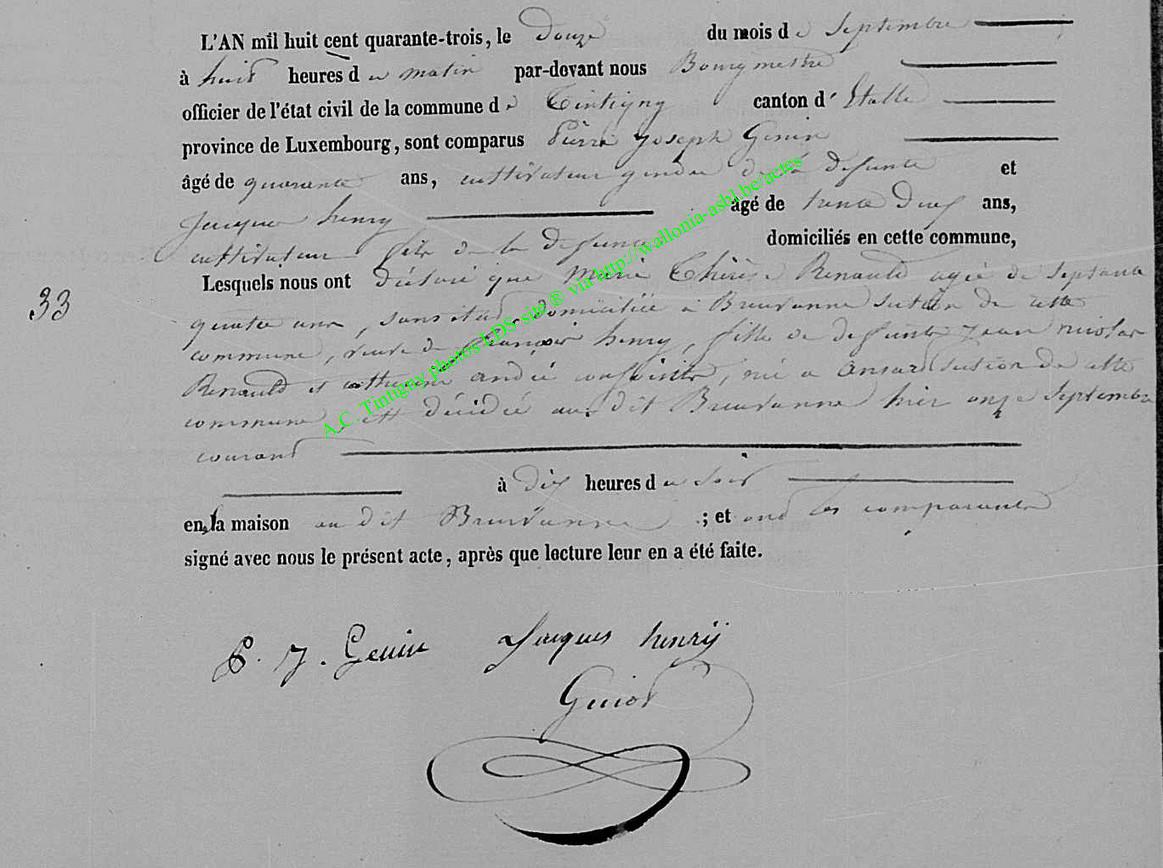 L'AN mil huit cent quarante-trois, le Douze du mois de Septembre
à huit heures du matin par-devant nous Bourgmestre
officier de l'état civil de la commune de Tintigny canton d'Etalle
province de Luxembourg, sont comparus Pierre Joseph Genin
âgé de quarante ans, cultivateur gendre de la defunte et
Jacques henry âgé de trente deux ans,
cultivateur fils de la defunte domiciliés en cette commune,
Lesquels nous ont déclaré que Marie Thérèse Renauld agée de Septante
33
quatre ans, sans état, domiciliée à Breuvanne section de cette
commune, veuve de françois henry, fille de defunts Jean nicolas
Renauld et catherine andré conjoints, née a ansart section de cette
commune, est décédée au dit Breuvanne hier onze Septembre
courant
à dix heures du soir
en la maison au dit Breuvanne ; et ont les comparants
signé avec nous le présent acte, après que lecture leur en a été faite.
P. J. Genin Jacques henrÿ
Guiot
A.C. Tintigny photos LDS site ® via http://wallonia-asbl.be/actes